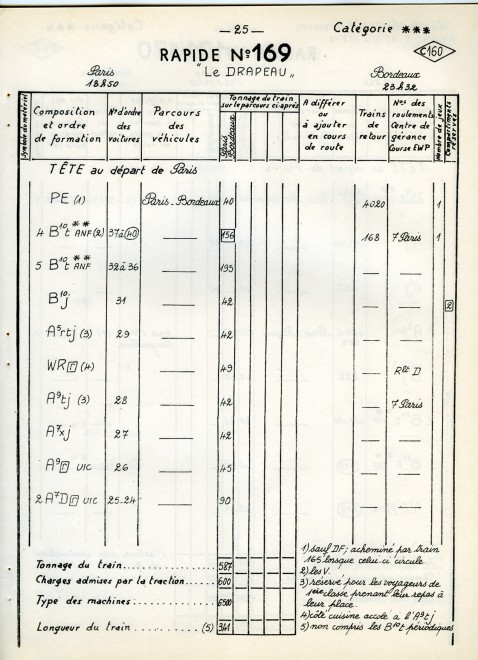 — 25 —
Catégorie ***
RAPIDE N° 169
C160
"LE DRAPEAU"
Paris
18h50
Bordeaux
23h32
Symbole du matériel
Composition et ordre de formation
N°d'ordre des voitures
Parcours des véhicules
Tonnage du train sur le parcours ci-après
Paris Bordeaux
A différer ou à ajouter en cours de route
Trains de retour
N°s des roulements Centre de gérance Course EWP
Nombre de jeux
Compartiments réservés
TÊTE au départ de Paris
PE (1) Paris-Bordeaux 40 4020 1
4 B10t ** ANF (2) 37à40 156 168 7 Paris 1
5 B10t ** ANF 32à36 195
B10j 31 42 2
A5rtj (3) 29 42
WR r (4) 49 Rlt D
A9tj (3) 28 42 7 Paris
A7xj 27 42
A9 r UIC 26 45
2 A7D r UIC 25.24 90
Tonnage du train 587
Charges admises par la traction 600
Type des machines 6500
Longueur du train (5) 341
1) sauf DF; acheminé par train
165 lorsque celui ci circule
2) les V.
3) réservé pour les voyageurs de
1ère classe prenant leur repas à
leur place.
4) côté cuisine accolé à l'A9tj
5) non compris les B10t périodiques